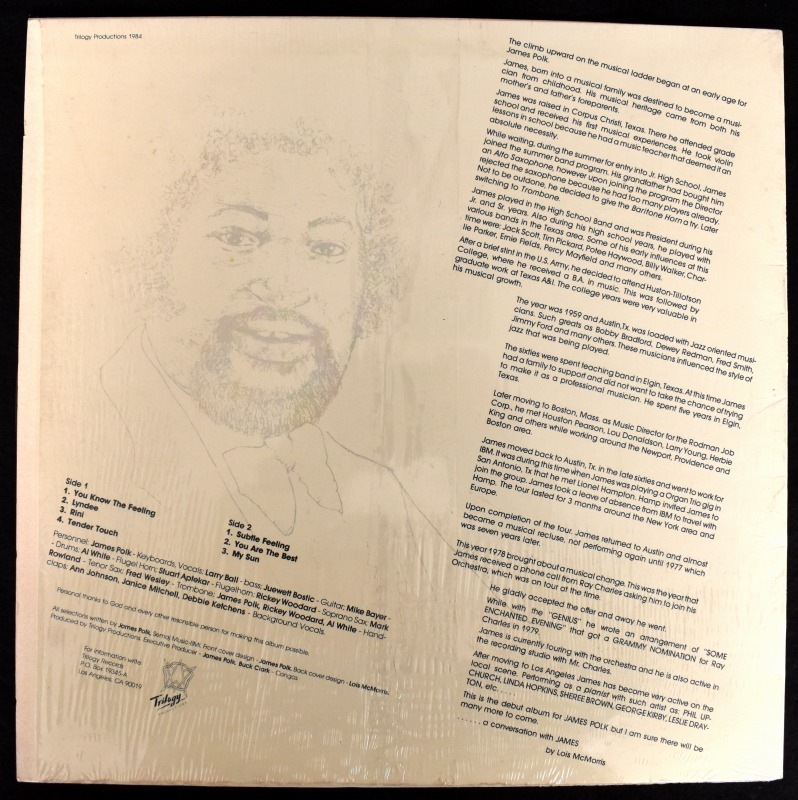 Trilogy Productions 1984
The climb upward on the musical ladder began at an early age for
James Polk.
James, born into a musical family was destined to become a musi-
cian from childhood. His musical heritage came from both his
mother's and father's foreparents.
James was raised in Corpus Christi, Texas. There he attended grade
school and received his first musical experiences. He took violin
lessons in school because he had a music teacher that deemed it an
absolute necessity.
While waiting, during the summer for entry into Jr. High School, James
joined the summer band program. His grandfather had bought him
an Alto Saxophone, however upon joining the program the Director
rejected the saxophone because he had too many players already.
Not to be outdone, he decided to give the Baritone Horn a try. Later
switching to Trombone.
James played in the High School Band and was President during his
Jr. and Sr. years. Also during his high school years, he played with
various bands in the Texas area. Some of his early influences at this
time were: Jack Scott, Tim Pickard, Potee Haywood, Billy Walker, Char-
lie Parker, Ernie Fields, Percy Mayfield and many others.
After a brief stint in the U.S. Army, he decided to attend Huston-Tillotson
College, where he received a B.A. in music. This was followed by
graduate work at Texas A&I. The college years were very valuable in
his musical growth.
The year was 1959 and Austin, Tx. was loaded with Jazz oriented musi-
cians. Such greats as Bobby Bradford, Dewey Redman, Fred Smith,
Jimmy Ford and many others. These musicians influenced the style of
jazz that was being played.
The sixties were spent teaching band in Elgin, Texas. At this time James
had a family to support and did not want to take the chance of trying
to make it as a professional musician. He spent five years in Elgin,
Texas.
Later moving to Boston, Mass. as Music Director for the Rodman Job
Corp., he met Houston Pearson, Lou Donaldson, Larry Young, Herbie
King and others while working around the Newport, Providence and
Boston area.
James moved back to Austin, Tx. in the late sixties and went to work for
IBM. It was during this time when James was playing a Organ Trio gig in
San Antonio, Tx that he met Lionel Hampton. Hamp invited James to
join the group. James took a leave of absence from IBM to travel with
Hamp. The tour lasted for 3 months around the New York area and
Europe.
Upon completion of the tour, James returned to Austin and almost
became a musical recluse, not performing again until 1977 which
was seven years later.
This year 1978 brought about a musical change. This was the year that
James received a phone call from Ray Charles asking him to join his
Orchestra, which was on tour at the time.
He gladly accepted the offer and away he went.
While, with the "GENIUS" he wrote an arrangement of "SOME
ENCHANTED EVENING" that got a GRAMMY NOMINATION for Ray
Charles in 1979.
James is currently touring with the orchestra and he is also active in
the recording studio with Mr. Charles.
After moving to Los Angeles James has become very active on the
local scene. Performing as a pianist with such artist as: PHIL UP-
CHURCH, LINDA HOPKINS, SHEREE BROWN, GEORGE KIRBY, LESLIE DRAY-
TON, etc. . . . .
This is the debut album for JAMES POLK but I am sure there will be
many more to come.
. . . . . . a conversation with JAMES
by Lois McMorris
Side 1
1. You Know The Feeling
2. Lyndee
3. Rini
4. Tender Touch
Side 2
1. Subtle Feeling
2. You Are The Best
3. My Sun
Personnel: James Polk - Keyboards, Vocals; Larry Ball - bass; Juewett Bostic - Guitar; Mike Bayer -
- Drums; Al White - Flugel Horn; Stuart Aptekar - Flugelhorn; Rickey Woodard - Soprano Sax; Mark
Rowland - Tenor Sax; Fred Wesley - Trombone; James Polk, Rickey Woodard, Al White - Hand-
claps; Ann Johnson, Janice Mitchell, Debbie Ketchens - Background Vocals.
Personal thanks to God and every other resonsible person for making this album possible.
All selections written by James Polk, Semaj Music-BMI, Front cover design - James Polk, Back cover design - Lois McMorris,
Produced by Trilogy Productions. Executive Producer - James Polk, Buck Clark - Congas
For information write:
Trilogy Records
P.O. Box 19345-A
Los Angeles, CA 90019
Trilogy